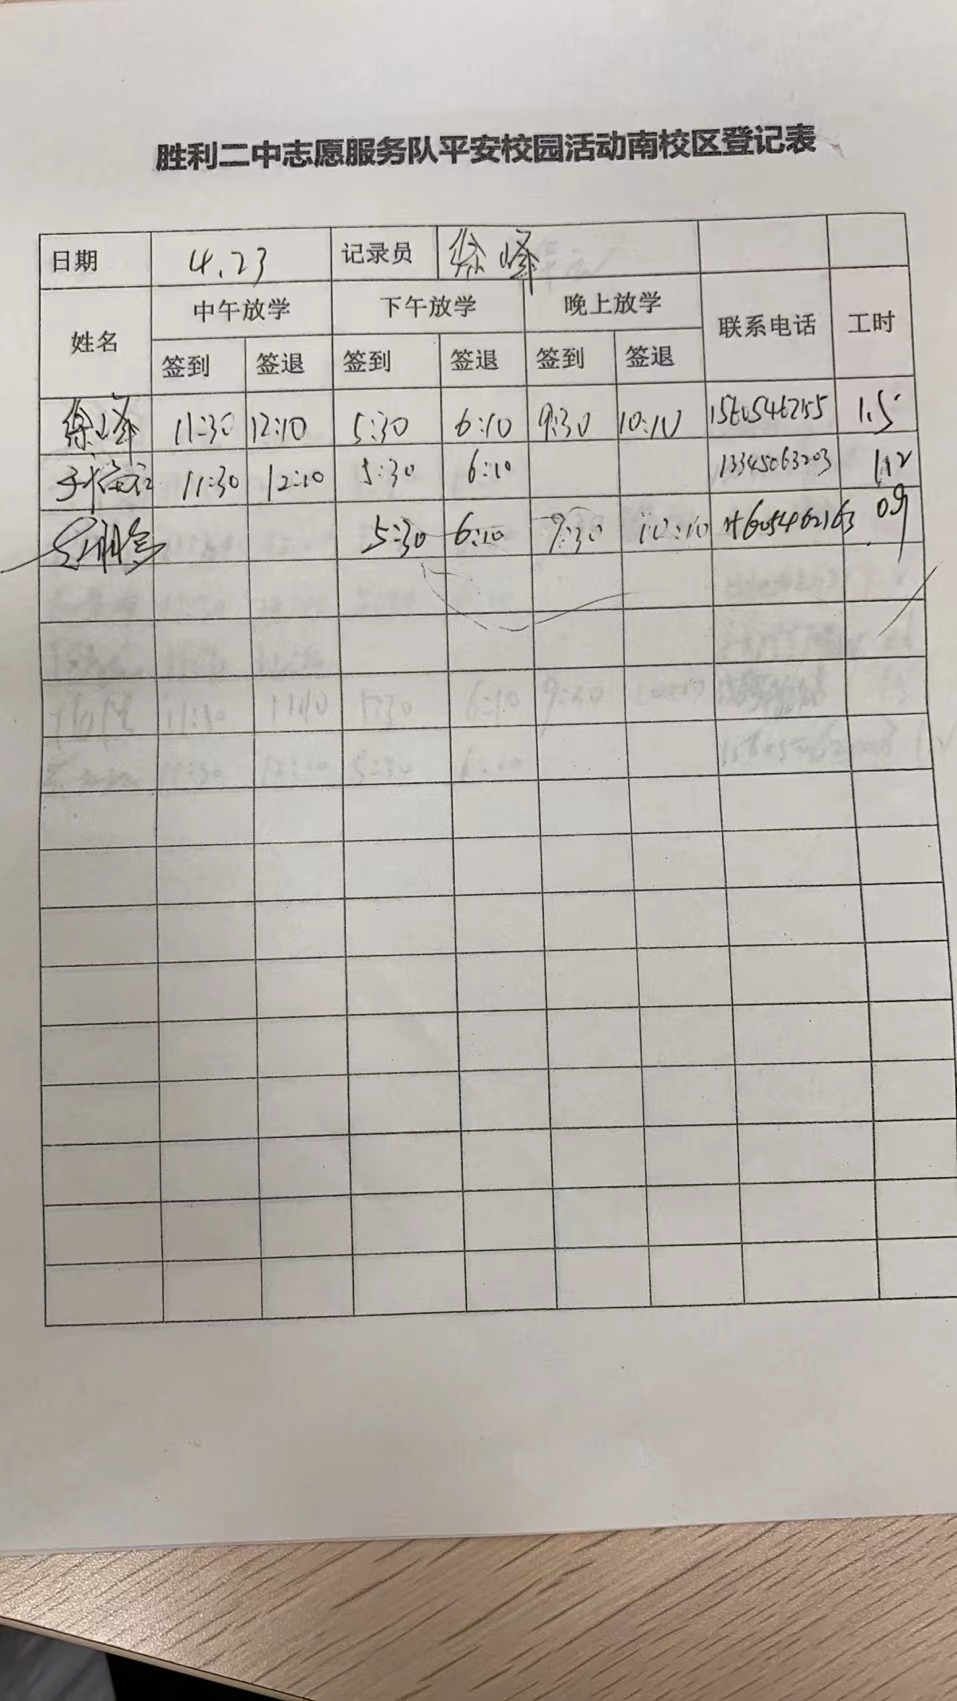 胜利二中志愿服务队平安校园活动南校区登记表
日期 4.23 记录员 徐峰
姓名 中午放学 下午放学 晚上放学 联系电话 工时
签到 签退 签到 签退 签到 签退
徐峰 11:30 12:10 5:30 6:10 9:30 10:10 15605467255 1.5
11:30 12:10 5:30 6:10 13345063203 1.2
5:30 6:10 9:30 10:10 0.9